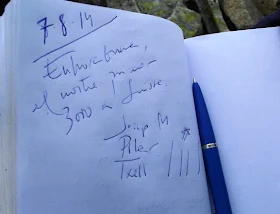 7-8-14
Enhorabona,
el nostre
3000 a
Josep M
Pilar
Txell